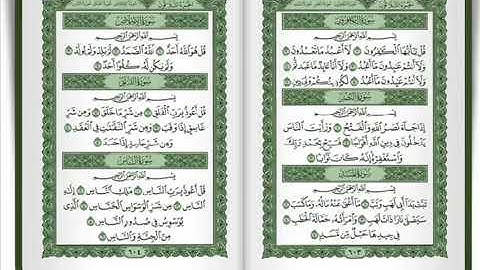 سُورَةُ الكَافِرُونَ
بِسْمِ اللَّهِ الرَّحْمَٰنِ الرَّحِيمِ
قُلْ يَٰٓأَيُّهَا ٱلْكَٰفِرُونَ ١ لَآ أَعْبُدُ مَا تَعْبُدُونَ ٢
وَلَآ أَنتُمْ عَٰبِدُونَ مَآ أَعْبُدُ ٣ وَلَآ أَنَا۠ عَابِدٌ مَّا عَبَدتُّمْ ٤
وَلَآ أَنتُمْ عَٰبِدُونَ مَآ أَعْبُدُ ٥ لَكُمْ دِينُكُمْ وَلِىَ دِينِ ٦
سُورَةُ النَّصْرِ
بِسْمِ اللَّهِ الرَّحْمَٰنِ الرَّحِيمِ
إِذَا جَآءَ نَصْرُ ٱللَّهِ وَٱلْفَتْحُ ١ وَرَأَيْتَ ٱلنَّاسَ
يَدْخُلُونَ فِى دِينِ ٱللَّهِ أَفْوَاجًا ٢ فَسَبِّحْ بِحَمْدِ رَبِّكَ
وَٱسْتَغْفِرْهُ إِنَّهُۥ كَانَ تَوَّابًۢا ٣
سُورَةُ المَسَدِ
بِسْمِ اللَّهِ الرَّحْمَٰنِ الرَّحِيمِ
تَبَّتْ يَدَآ أَبِى لَهَبٍ وَتَبَّ ١ مَآ أَغْنَىٰ عَنْهُ مَالُهُۥ وَمَا كَسَبَ ٢
سَيَصْلَىٰ نَارًا ذَاتَ لَهَبٍ ٣ وَٱمْرَأَتُهُۥ حَمَّالَةَ ٱلْحَطَبِ ٤
فِى جِيدِهَا حَبْلٌ مِّن مَّسَدٍۭ ٥
٦٠٣
سُورَةُ الإِخْلَاصِ
بِسْمِ اللَّهِ الرَّحْمَٰنِ الرَّحِيمِ
قُلْ هُوَ ٱللَّهُ أَحَدٌ ١ ٱللَّهُ ٱلصَّمَدُ ٢ لَمْ يَلِدْ وَلَمْ يُولَدْ ٣
وَلَمْ يَكُن لَّهُۥ كُفُوًا أَحَدٌۢ ٤
سُورَةُ الفَلَقِ
بِسْمِ اللَّهِ الرَّحْمَٰنِ الرَّحِيمِ
قُلْ أَعُوذُ بِرَبِّ ٱلْفَلَقِ ١ مِن شَرِّ مَا خَلَقَ ٢ وَمِن شَرِّ
غَاسِقٍ إِذَا وَقَبَ ٣ وَمِن شَرِّ ٱلنَّفَّٰثَٰتِ فِى ٱلْعُقَدِ ٤
وَمِن شَرِّ حَاسِدٍ إِذَا حَسَدَ ٥
سُورَةُ النَّاسِ
بِسْمِ اللَّهِ الرَّحْمَٰنِ الرَّحِيمِ
قُلْ أَعُوذُ بِرَبِّ ٱلنَّاسِ ١ مَلِكِ ٱلنَّاسِ ٢ إِلَٰهِ
ٱلنَّاسِ ٣ مِن شَرِّ ٱلْوَسْوَاسِ ٱلْخَنَّاسِ ٤ ٱلَّذِى
يُوَسْوِسُ فِى صُدُورِ ٱلنَّاسِ ٥
مِنَ ٱلْجِنَّةِ وَٱلنَّاسِ ٦
٦٠٤